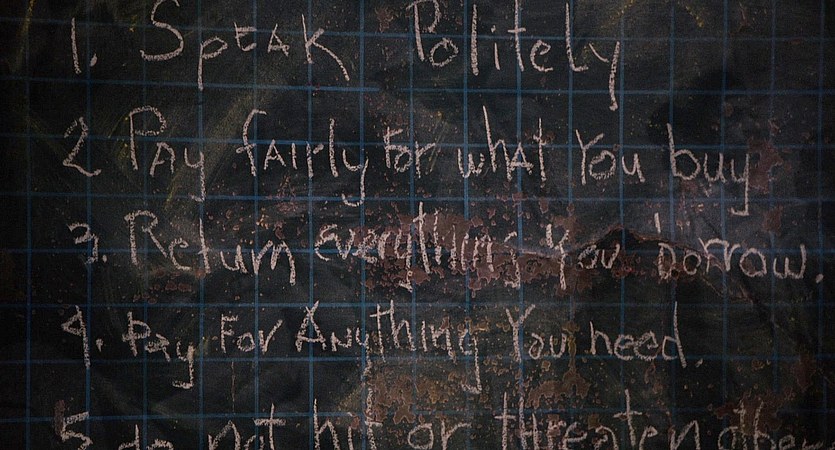 1. Speak Politely
2. Pay fairly for what You buy
3. Return everything You borrow.
4. Pay For Anything You need.
5. do not hit or threaten